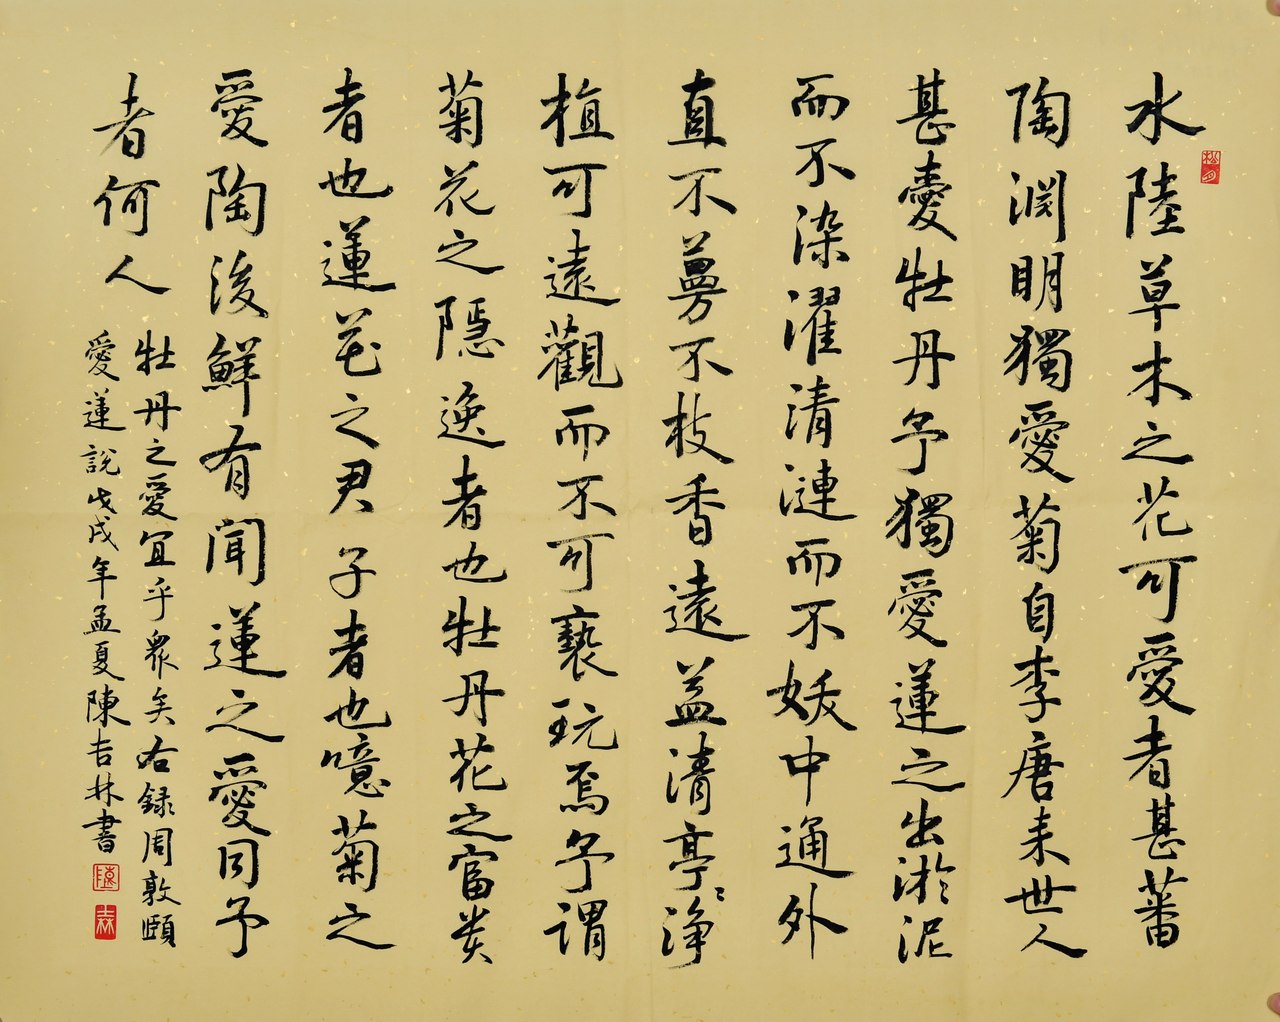 水陸草木之花可愛者甚蕃
陶渊明獨愛菊自李唐来世人
甚愛牡丹予獨愛蓮之出淤泥
而不染濯清漣而不妖中通外
直不蔓不枝香遠益清亭〻净
植可遠觀而不可褻玩焉予謂
菊花之隱逸者也牡丹花之富贵
者也蓮花之君子者也噫菊之
愛陶後鮮有聞蓮之愛同予
者何人
牡丹之愛宜乎衆矣右録周敦頤
愛蓮說戊戌年孟夏陳吉林書